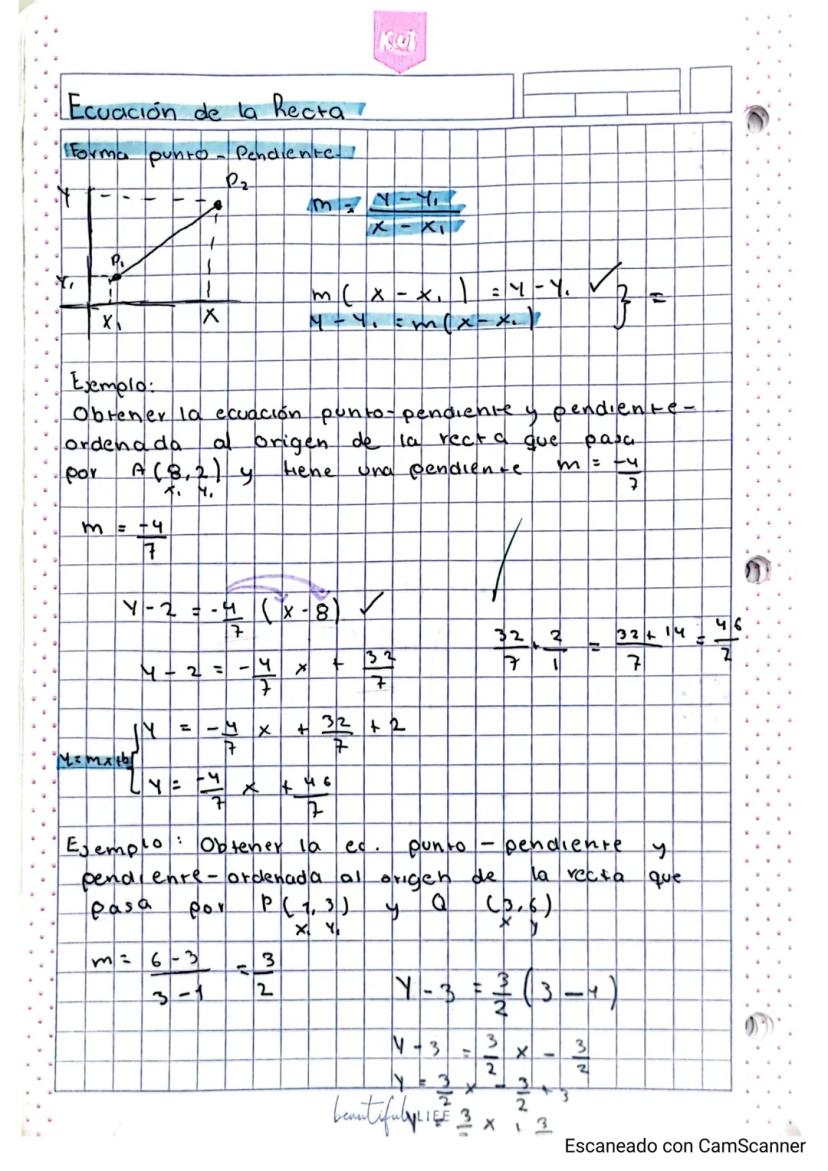 KUT
Ecuación de la Recta
Forma punto - Pendiente
Y
P2
P1
Y1
X1
X
m = Y - Y1 / X - X1
m ( X - X1 ) = Y - Y1 ✓ } =
Y - Y1 = m ( X - X1 )
Ejemplo:
Obtener la ecuación punto-pendiente y pendiente-
ordenada al origen de la recta que pasa
por A (8,2) y tiene una pendiente m = -4/7
X1 Y1
m = -4/7
Y - 2 = -4/7 ( X - 8 ) ✓
Y - 2 = -4/7 x + 32/7
32/7 + 2/1 = 32 + 14 / 7 = 46/7
Y = -4/7 x + 32/7 + 2
Y = mx + b
Y = -4/7 x + 46/7
Ejemplo: Obtener la ec. punto - pendiente y
pendiente-ordenada al origen de la recta que
pasa por P (1,3) y Q (3,6)
X1 Y1 x y
m = 6 - 3 / 3 - 1 = 3/2
Y - 3 = 3/2 (3 - 1)
Y - 3 = 3/2 x - 3/2
Y = 3/2 x - 3/2 + 3
beautiful LIFE
= 3 x 3
Escaneado con CamScanner